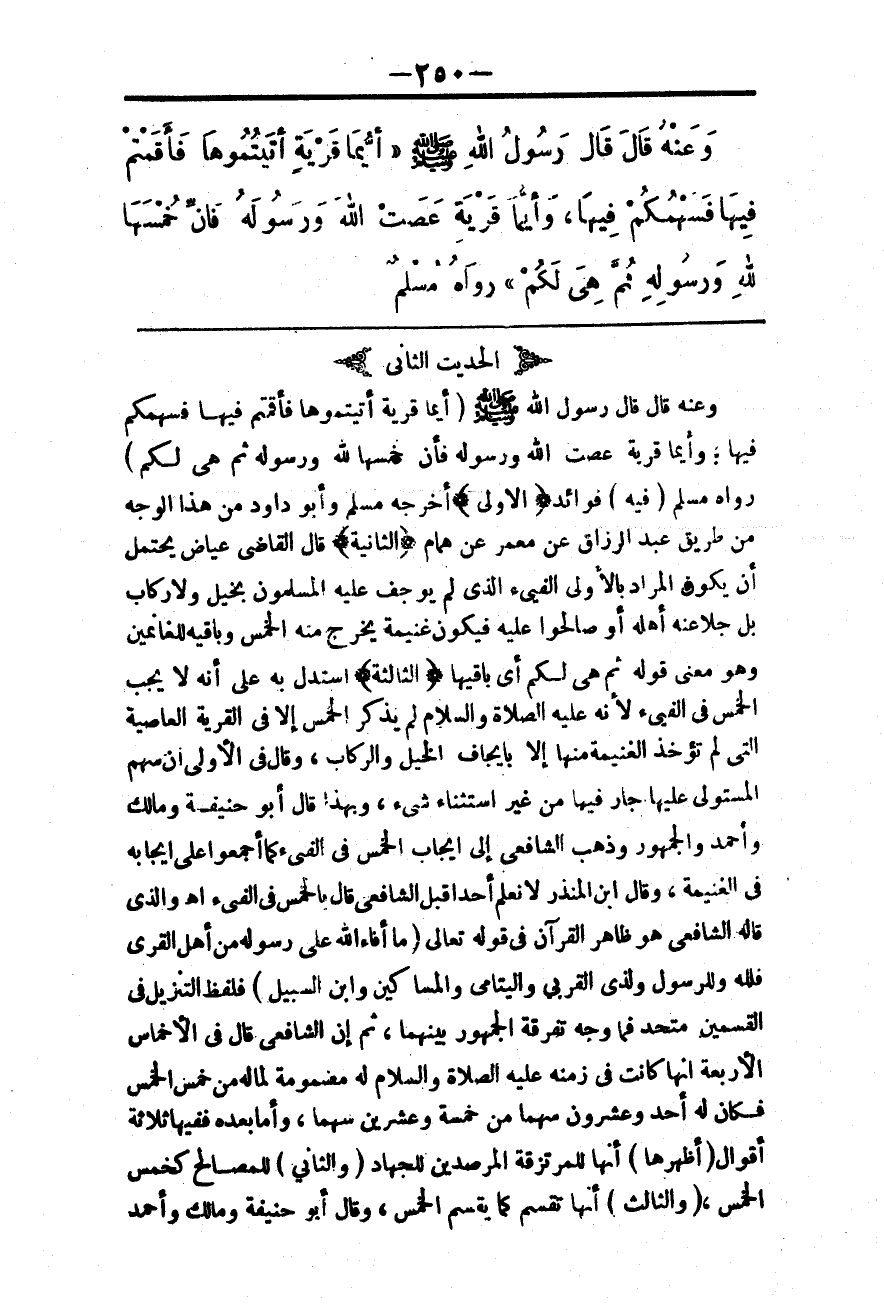 — ٢٥٠ —
وَعَنْهُ قَالَ قَال رَسُولُ اللهِ ﷺ « أَيُّمَا قَرْيَةٍ أَتَيْتُمُوهَا فَأَقَمْتُمْ
فِيهَا فَسَهْمُكُمْ فِيهَا، وَأَيُّمَا قَرْيَةٍ عَصَتْ اللهَ وَرَسُولَهُ فَانَّ خُمْسَهَا
لِلهِ وَرَسُولِهِ ثُمَّ هِىَ لَكُمْ » رَوَاهُ مُسْلِمٌ
الحديث الثانى
وعنه قال قال رسول الله ﷺ ( أيما قرية أتيتموها فأقمتم فيهـا فسهمكم
فيها ؛ وأيما قرية عصت الله ورسوله فأن خمسها لله ورسوله ثم هى لـكم )
رواه مسلم ( فيه ) فوائد ﴿ الاولى ﴾ أخرجه مسلم وأبو داود من هذا الوجه
من طريق عبد الرزاق عن معمر عن همام ﴿الثانية﴾ قال القاضى عياض يحتمل
أن يكون المراد بالأولى الفىء الذى لم يوجف عليه المسلمون بخيل ولاركاب
بل جلاعنه أهله أو صالحوا عليه فيكون غنيمة يخرج منه الخمس وباقيه للغانمين
وهو معنى قوله ثم هى لـكم أى باقيها ﴿ الثالثة﴾ استدل به على أنه لا يجب
الخمس فى الفىء لأنه عليه الصلاة والسلام لم يذكر الخمس إلا فى القرية العاصية
التى لم تؤخذ الغنيمة منها إلا بايجاف الخيل والركاب ، وقال فى الأولى ان سهم
المستولى عليها جار فيها من غير استثناء شىء ، وبهذا قال أبو حنيفـة ومالك
وأحمد والجمهور وذهب الشافعى إلى ايجاب الخمس فى الفىء كما أجمعوا على ايجابه
فى الغنيمة ، وقال ابن المنذر لا نعلم أحدا قبل الشافعى قال بالخمس فى الفىء اه والذى
قاله الشافعى هو ظاهر القرآن فى قوله تعالى ( ما أفاءالله على رسوله من أهل القرى
فلله وللرسول ولذى القربي واليتامى والمساكين وابن السبيل ) فلفظ التنزيل فى
القسمين متحد فما وجه تفرقة الجمهور بينهما ، ثم إن الشافعى قال فى الأخماس
الأربعة انها كانت فى زمنه عليه الصلاة والسلام له مضمومة لماله من خمس الخمس
فـكان له أحد وعشرون سهما من خمسة وعشرين سهما ، وأما بعده ففيها ثلاثة
أقوال ( أظهرها ) أنها للمرتزقة المرصدين للجهاد ( والثاني ) للمصـالح كخمس
الخمس ، ( والثالث ) أنها تقسم كما يقسم الخمس ، وقال أبو حنيفة ومالك وأحمد